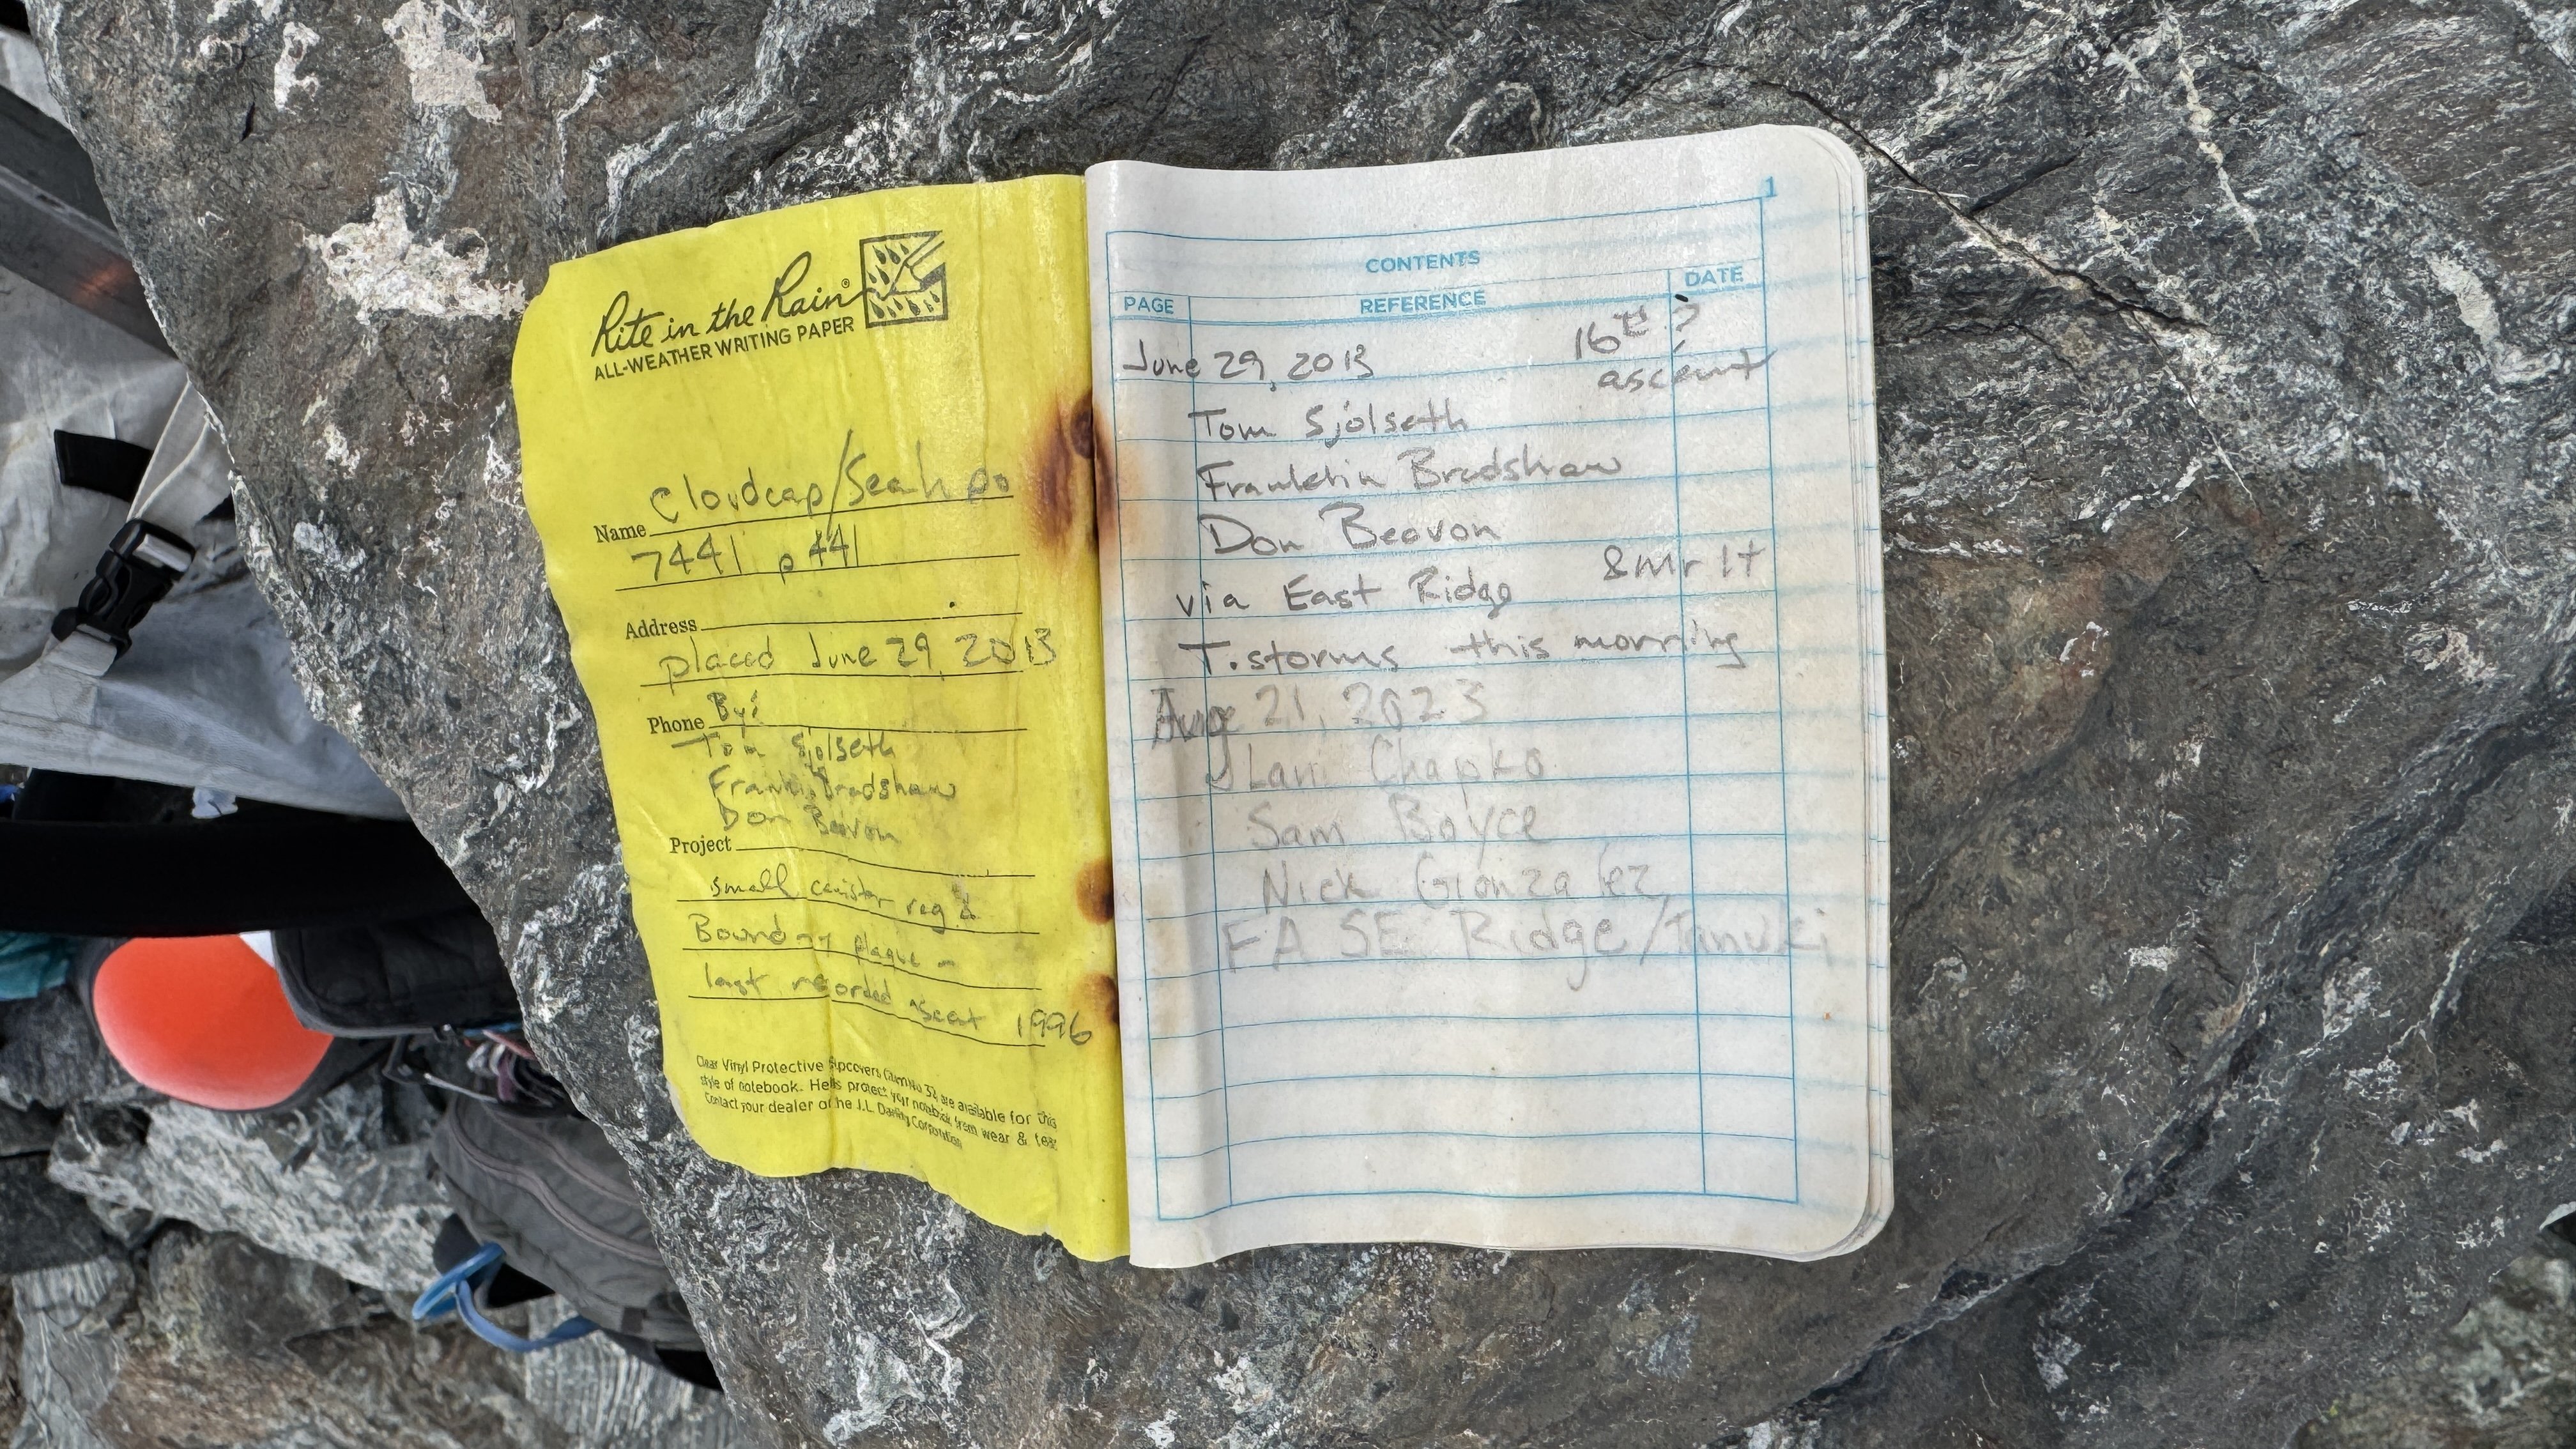 Rite in the Rain®
ALL-WEATHER WRITING PAPER
Cloudcap/Seahpo
Name
7441 p441
Address
placed June 29, 2013
Phone By:
Tom Sjolseth
Frank Bradshaw
Don Beavon
Project
small canister reg &
Boundary plaque -
last recorded ascent 1996
Clear Vinyl Protective Slipcovers (Item No 32) are available for this
style of notebook. Helps protect your notebook from wear & tear.
Contact your dealer or the J.L. Darling Corporation
1
CONTENTS
PAGE REFERENCE DATE
June 29, 2013 16th ?
ascent
Tom Sjolseth
Franklin Bradshaw
Don Beavon
via East Ridge & Mr
T.storms this morning
Aug 21, 2023
Lani Chapko
Sam Boyce
Nick Gonzalez
FA SE Ridge/Tanuki